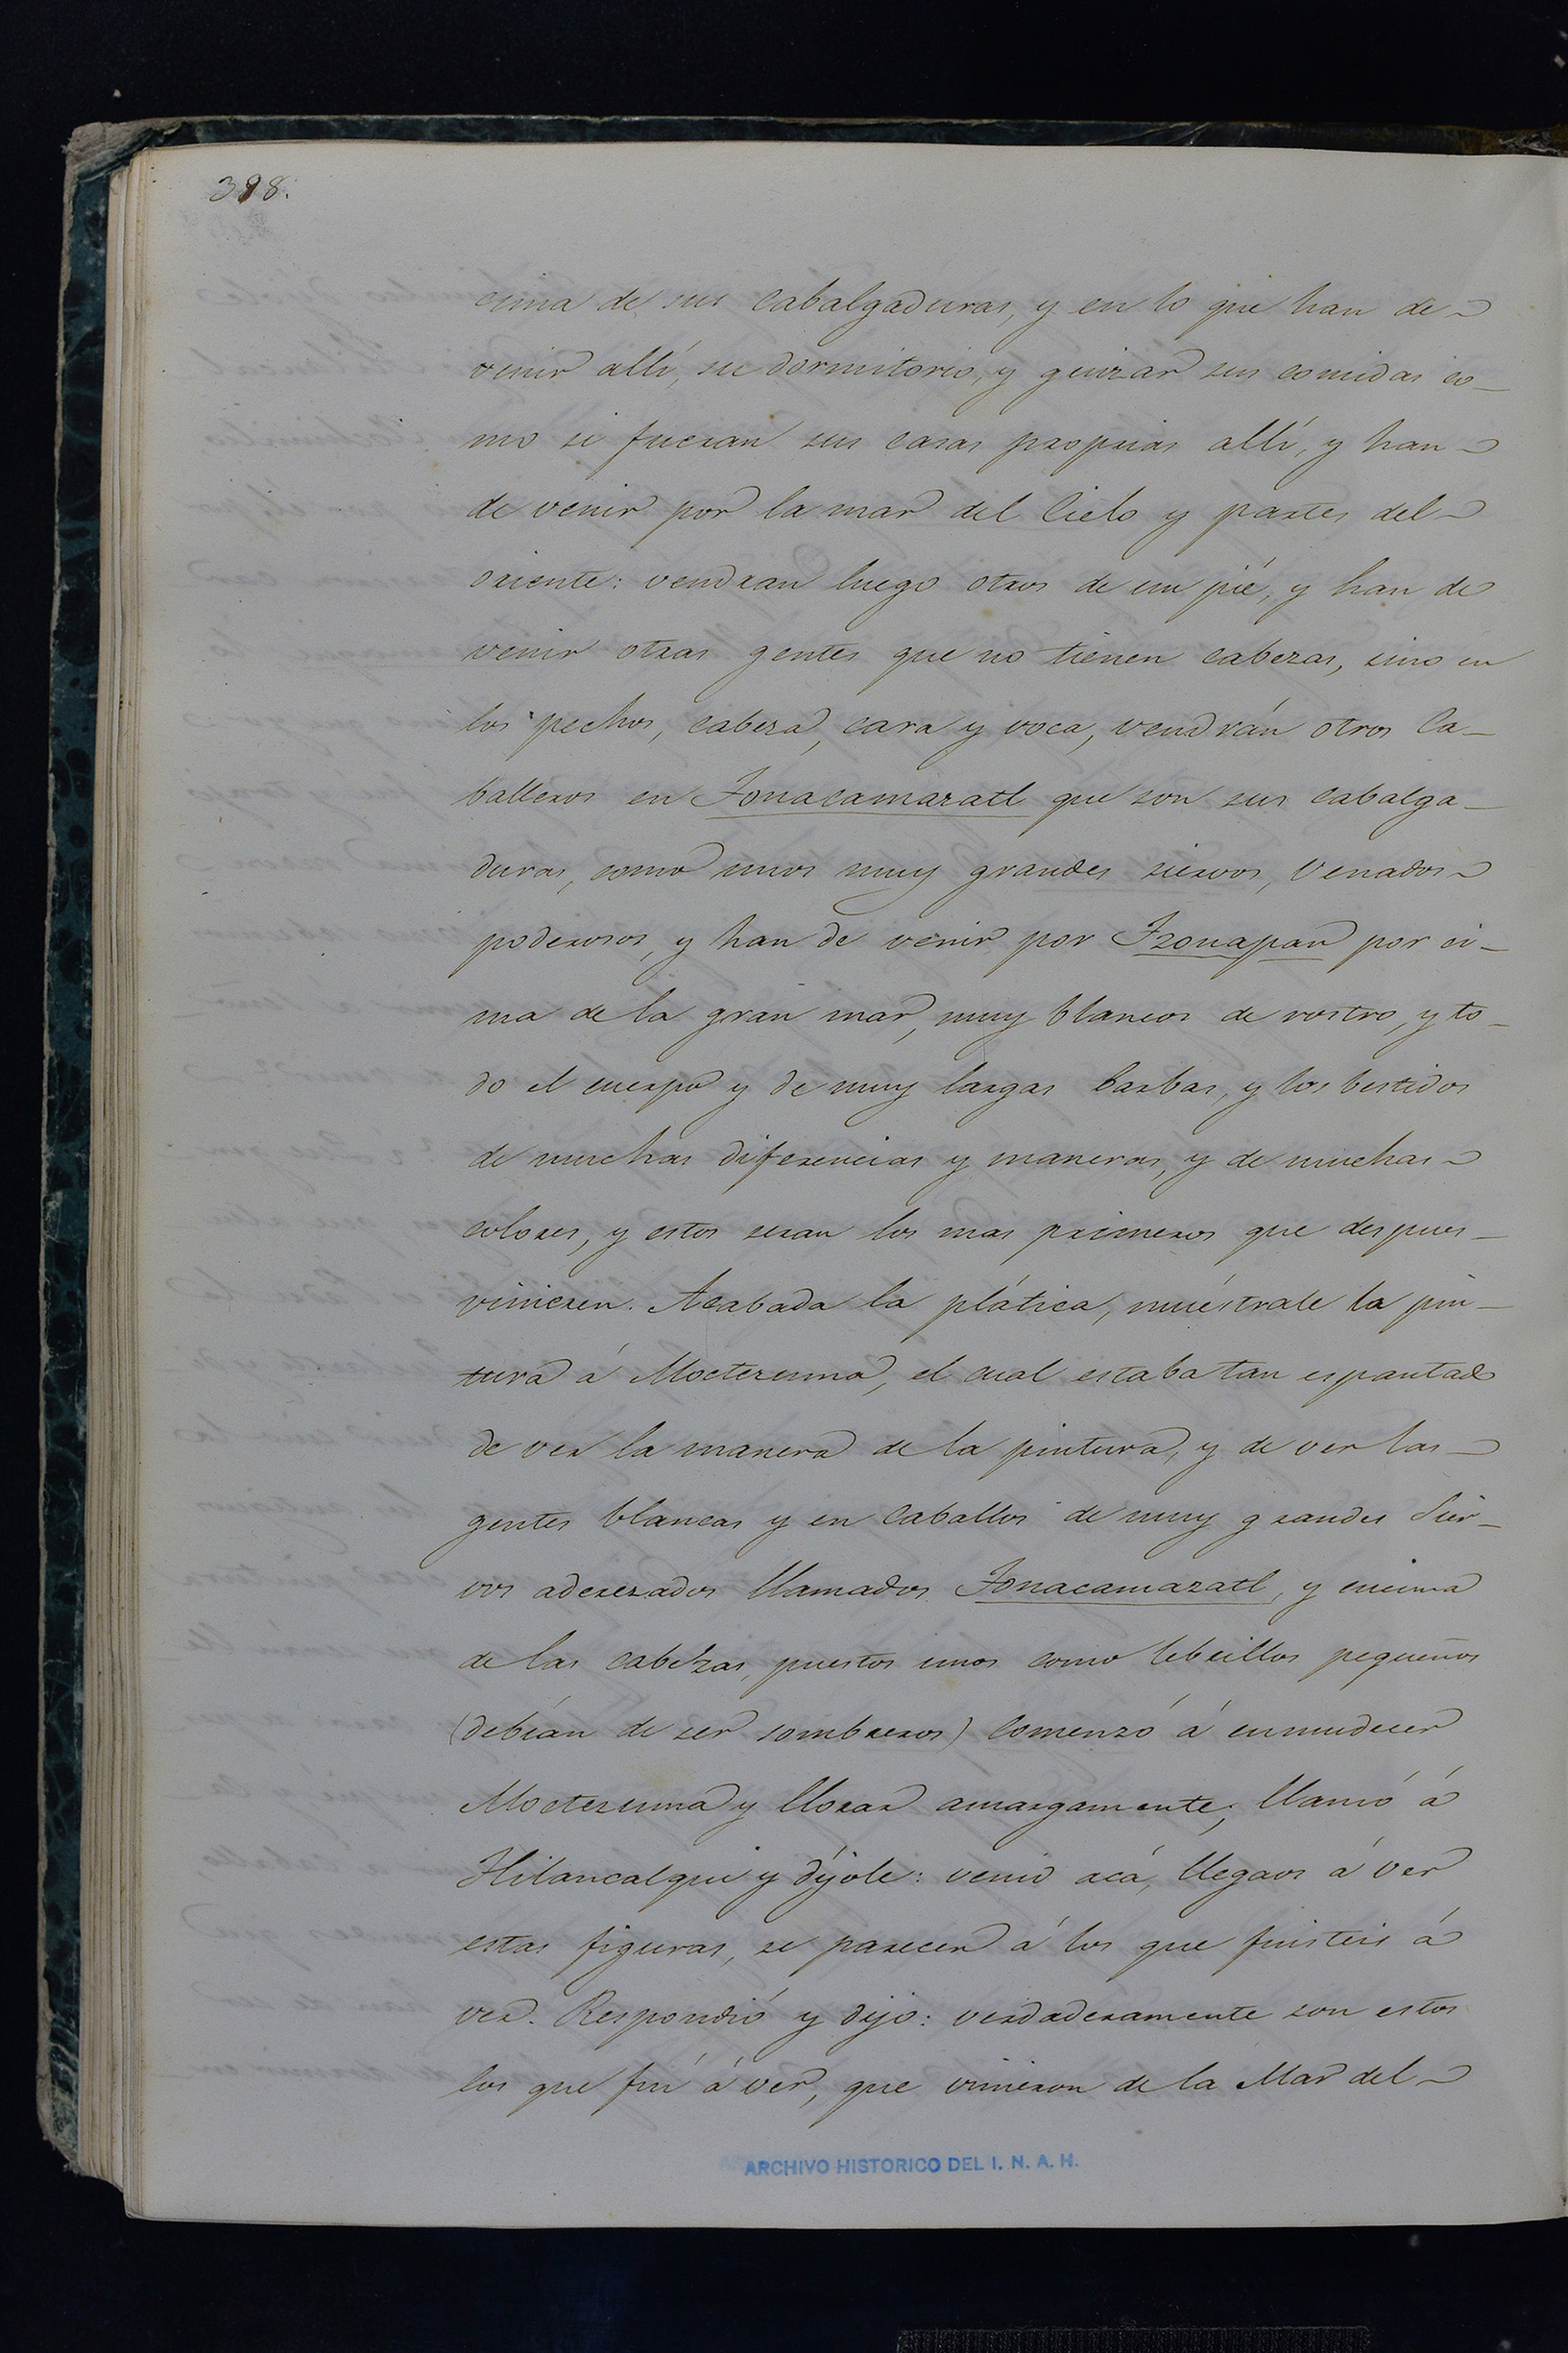 398.
cima de sus cabalgaduras, y en lo que han de
venir allí, su dormitorio, y guizar sus comidas co-
mo si fueran sus casas proprias allí, y han
de venir por la mar del Cielo y partes del
oriente: vendran luego otros de un pié, y han de
venir otras gentes que no tienen cabezas, sino en
los pechos, cabeza, cara y voca, vendrán otros Ca-
balleros en Tonacamazatl que son sus cabalga-
duras, como unos muy grandes siervos, Venados
poderosos, y han de venir por Tzonapan por ci-
ma de la gran mar, muy blancos de rostro, y to-
do el cuerpo y de muy largas barbas, y los bestidos
de muchas diferencias y maneras, y de muchas
colores, y estos seran los mas primeros que despues
vinieren. Acabada la plática, muéstrale la pin-
tura á Moctezuma, el cual estaba tan espantado
de ver la manera de la pintura, y de ver las
gentes blancas y en Caballos de muy grandes Sier-
vos aderezados llamados Tonacamazatl, y encima
de las cabezas, puestos unos como lebrillos pequeños
(debían de ser sombreros) comenzó á enmudecer
Moctezuma y llorar amargamente, llamó á
Hilancalqui y díjole: venid acá, llegaos á ver
estas figuras, se parecen á los que fuisteis á
ver. Respondió y dijo: verdaderamente son estos
los que fuí á ver, que vinieron de la Mar del
ARCHIVO HISTORICO DEL I. N. A. H.